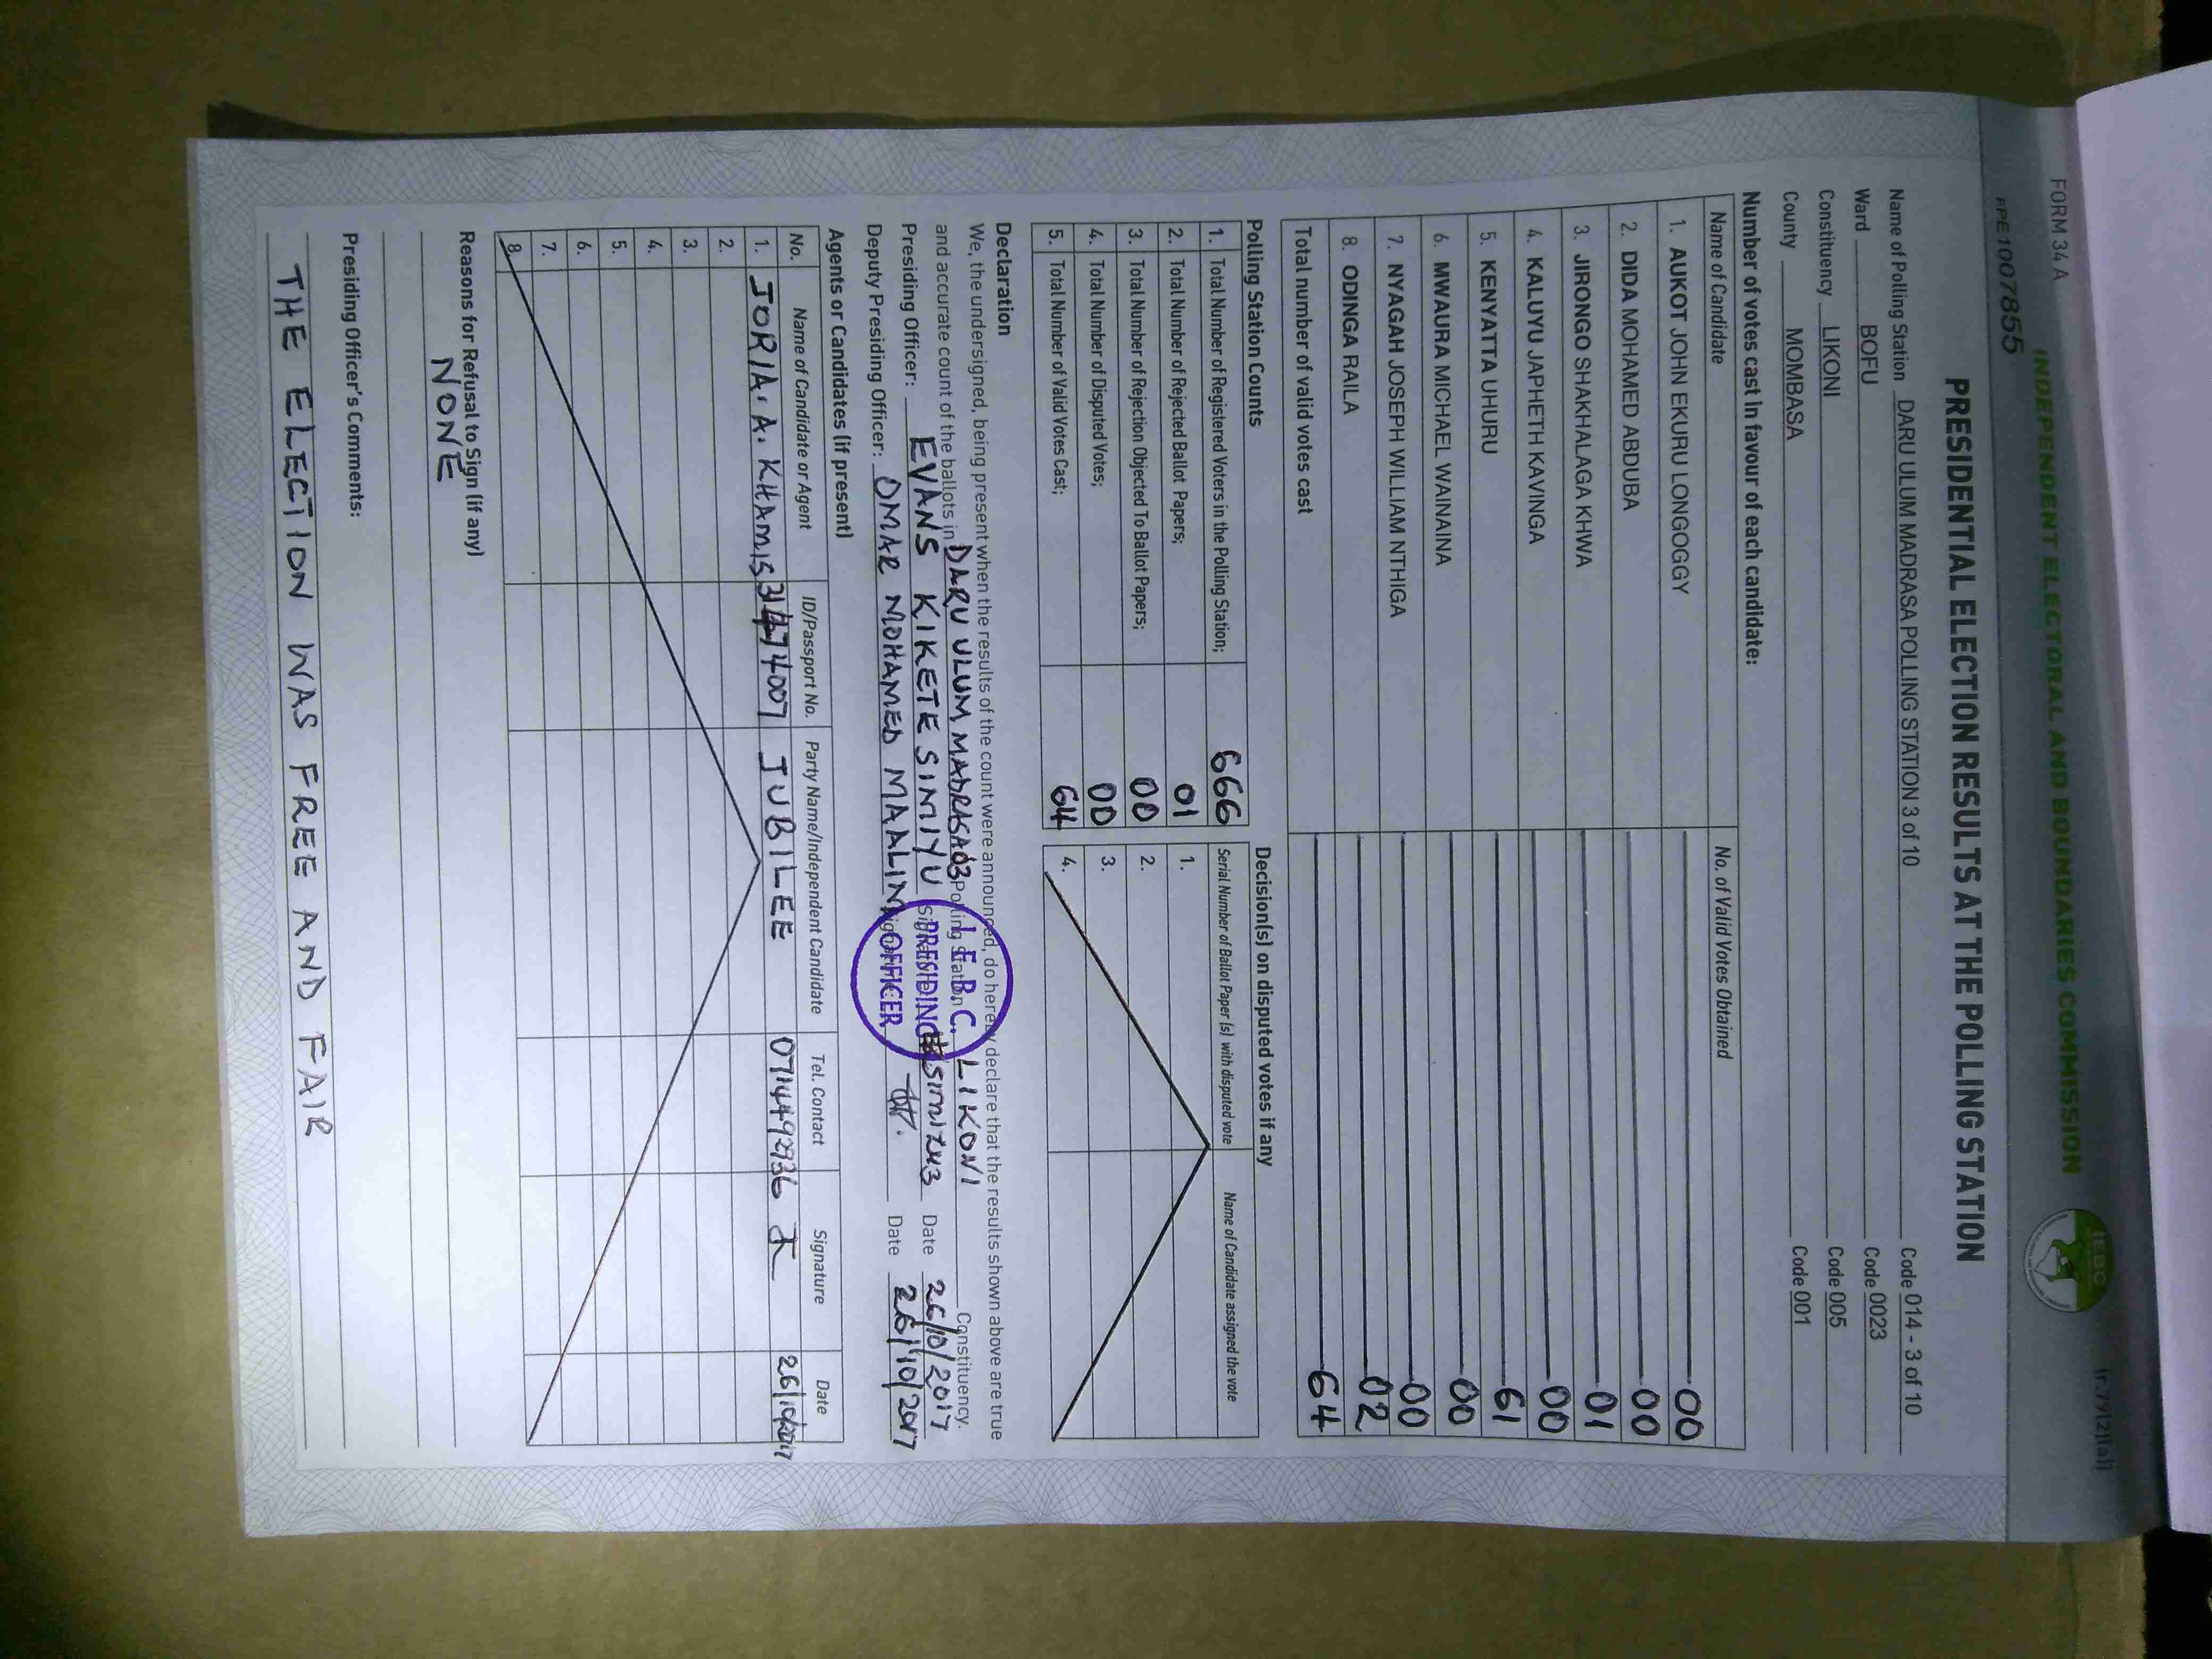 FORM 34 A
(r.79(2)(a))
INDEPENDENT ELECTORAL AND BOUNDARIES COMMISSION
IEBC
PRESIDENTIAL ELECTION RESULTS AT THE POLLING STATION
Name of Polling Station DARU ULUM MADRASA POLLING STATION 3 of 10 Code 014 - 3 of 10
Ward BOFU Code 0023
Constituency LIKONI Code 005
County MOMBASA Code 001
Number of votes cast in favour of each candidate:
Name of Candidate No. of Valid Votes Obtained
1. AUKOT JOHN EKURU LONGOGGY 00
2. DIDA MOHAMED ABDUBA 00
3. JIRONGO SHAKHALAGA KHWA 01
4. KALUYU JAPHETH KAVINGA 00
5. KENYATTA UHURU 61
6. MWAURA MICHAEL WAINAINA 00
7. NYAGAH JOSEPH WILLIAM NTHIGA 00
8. ODINGA RAILA 02
Total number of valid votes cast 64
Polling Station Counts
1. Total Number of Registered Voters in the Polling Station; 666
2. Total Number of Rejected Ballot Papers; 01
3. Total Number of Rejection Objected To Ballot Papers; 00
4. Total Number of Disputed Votes; 00
5. Total Number of Valid Votes Cast; 64
Decision(s) on disputed votes if any
Serial Number of Ballot Paper (s) with disputed vote Name of Candidate assigned the vote
1.
2.
3.
4.
Declaration
We, the undersigned, being present when the results of the count were announced, do hereby declare that the results shown above are true
and accurate count of the ballots in DARU ULUM MADRASA 03 Polling Station LIKONI Constituency.
Presiding Officer: EVANS KIKETE SIMIYU Date 26/10/2017
Deputy Presiding Officer: OMAR MOHAMED MAALIM Date 26/10/2017
I.E.B.C.
PRESIDING
OFFICER
Agents or Candidates (if present)
No. Name of Candidate or Agent ID/Passport No. Party Name/Independent Candidate Tel. Contact Signature Date
1. JORIA. A. KHAMIS JUBILEE 26/10/2017
2.
3.
4.
5.
6.
7.
8.
Reasons for Refusal to Sign (if any)
NONE
Presiding Officer's Comments:
THE ELECTION WAS FREE AND FAIR